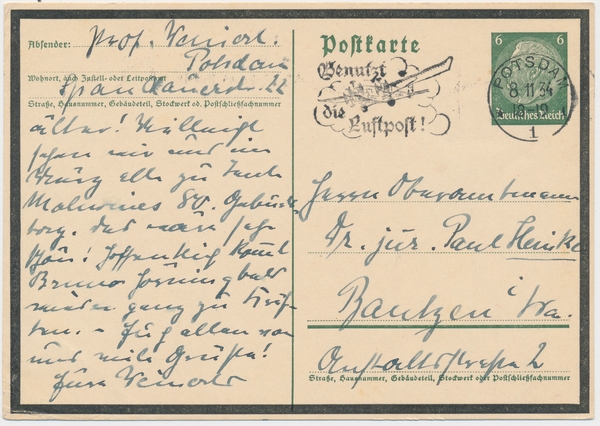 Absender: Prof. Weinert.
Potsdam
Wohnort, auch Zustell- oder Leitpostamt
Spandauerstr. 22
Straße, Hausnummer, Gebäudeteil, Stockwerk od. Postschließfachnummer
älter! Vielleicht
sehen wir uns im
März alle zu Tante
Malwines 80. Geburts
tag. Das wäre sehr
schön! Hoffentlich kommt
Bruno
wieder ganz zu Kräf-
ten. - Euch allen von
uns viele Grüße!
Eure Weinerts
Postkarte
Benutzt
die
Luftpost!
POTSDAM
8 11 34
1
6 6
Deutsches Reich
Herrn Oberamtmann
Dr. jur. Paul Heinke
Bautzen i/Sa.
Anstaltsstraße 2
Straße, Hausnummer, Gebäudeteil, Stockwerk oder Postschließfachnummer